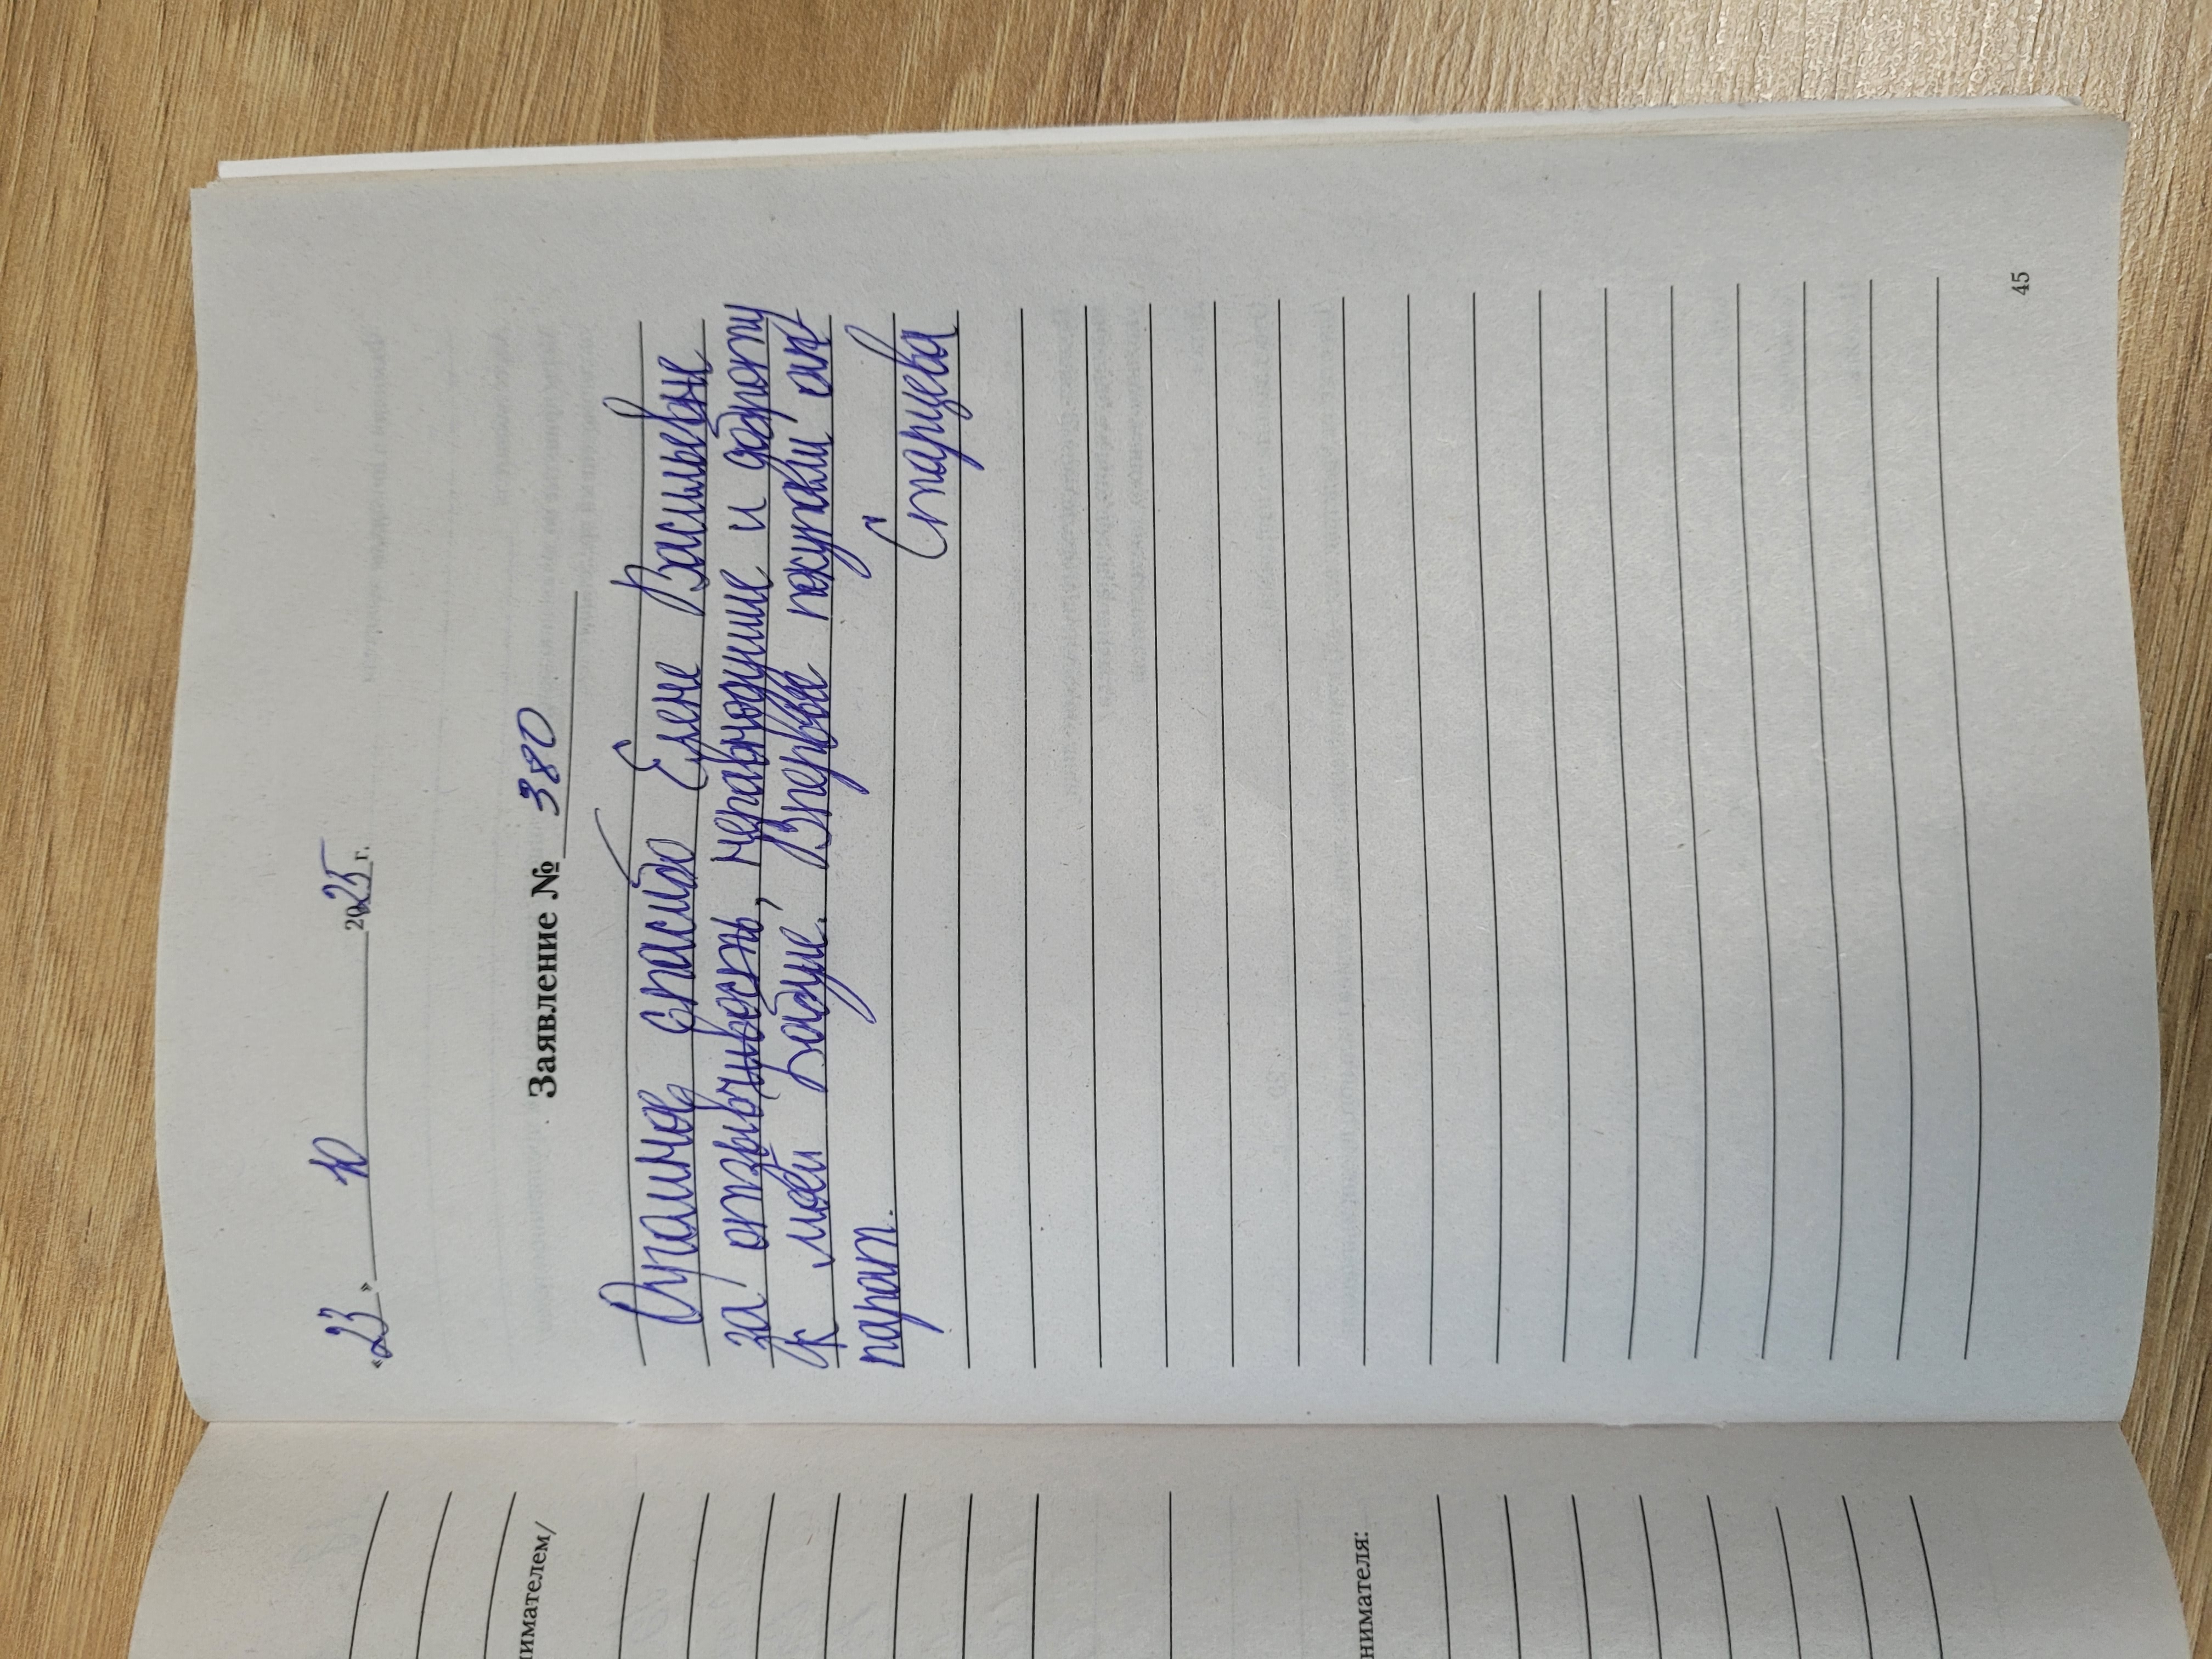 «23» 10 2025 г.
Заявление № 380
Огромное спасибо Елене Васильевне
за отзывчивость, неравнодушие и доброту
к моей бабуле. Впервые покупали ап-
парат.
Старцева
45
нимателем/
нимателя: